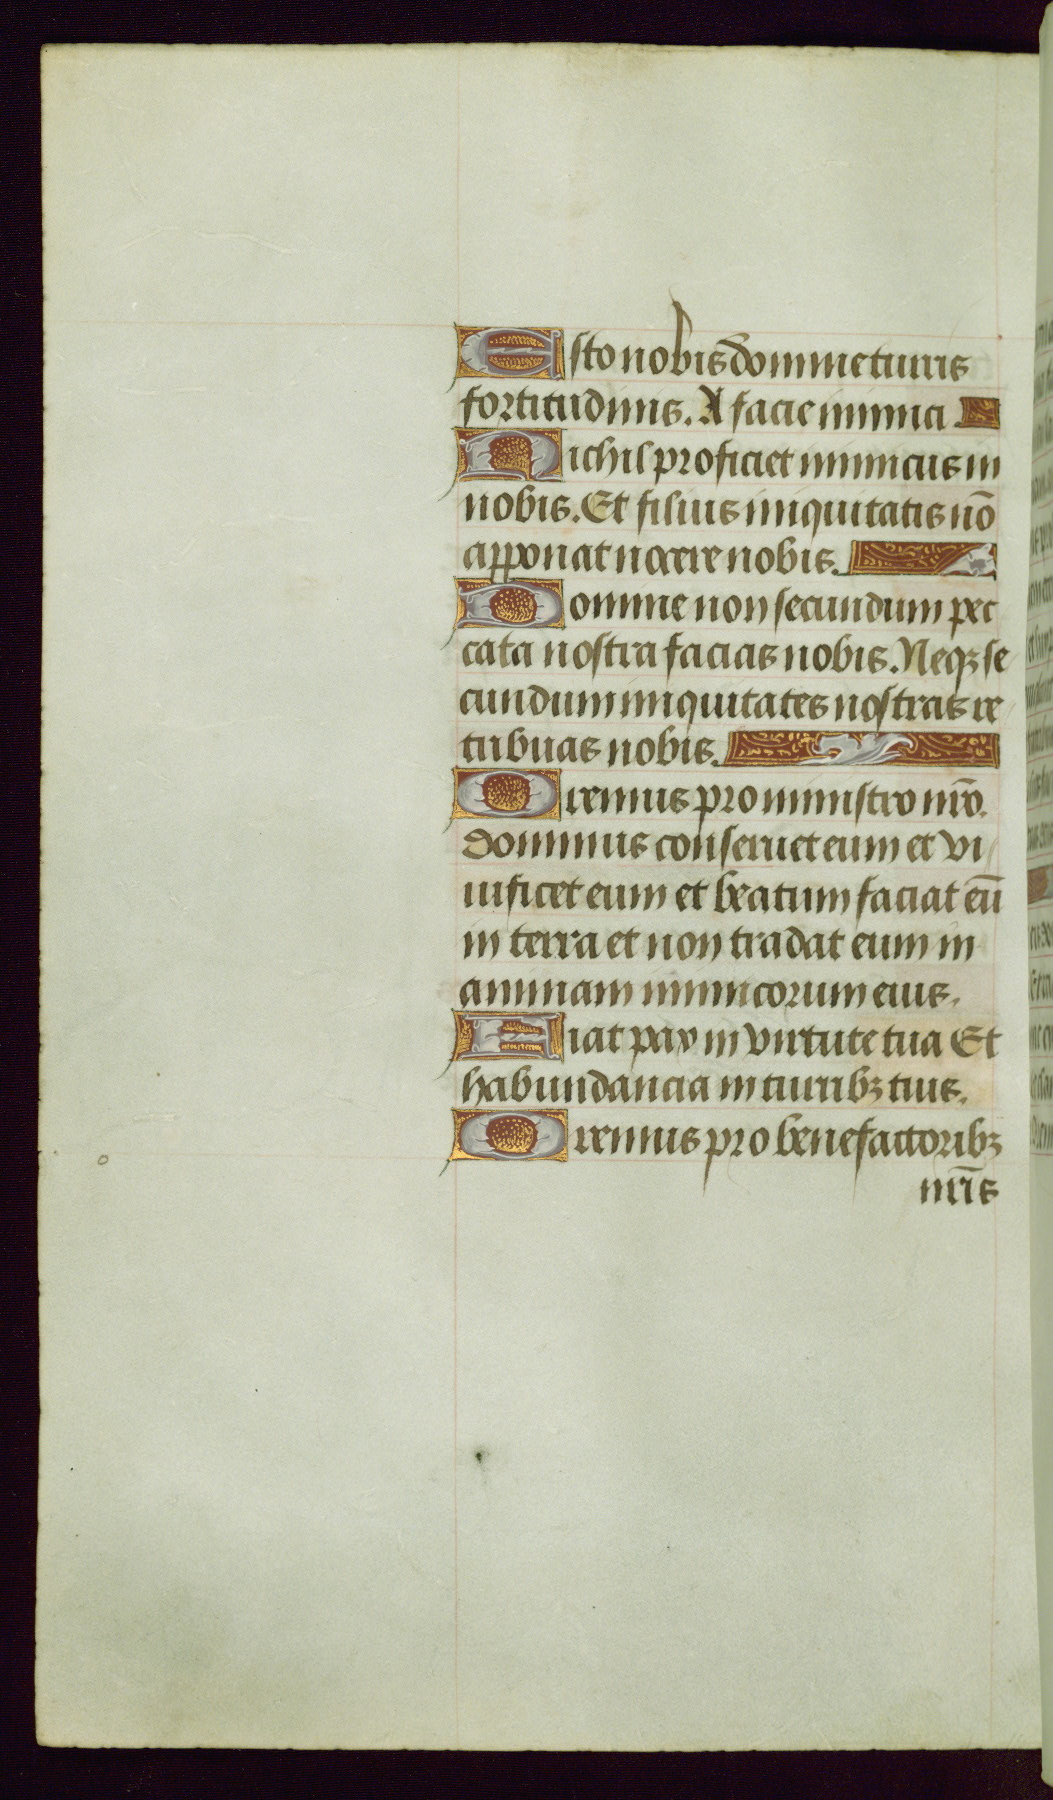 Esto nobis domine turris
fortitudinis. A facie inimici.
Nichil proficiet inimicus in
nobis. Et filius iniquitatis nō
apponat nocere nobis.
Domine non secundum pec
cata nostra facias nobis. Neqꝫ se
cundum iniquitates nostras re
tribuas nobis.
Oremus pro ministro nr̄o.
dominus conseruet eum et vi
uificet eum et beatum faciat eū
in terra et non tradat eum in
animam inimicorum eius.
Fiat pax in virtute tua Et
habundancia in turribꝫ tuis.
Oremus pro benefactoribꝫ
nr̄is